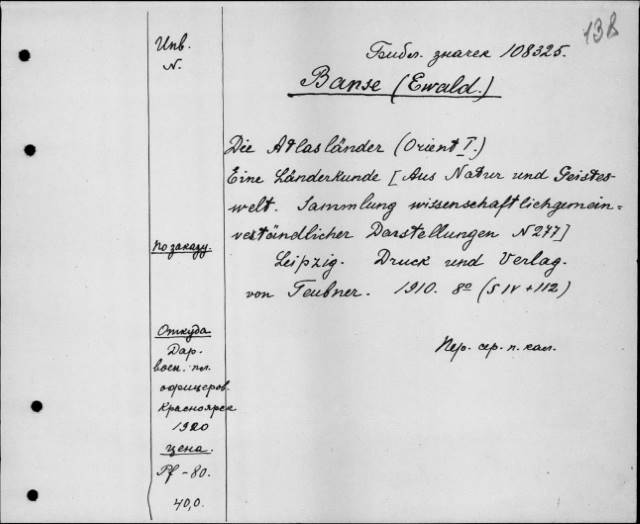 138
Инв.
N.
Библ. значек 108325.
Banse (Ewald.)
Die Atlasländer (Orient I.)
Eine Länderkunde [Aus Natur und Geistes-
welt. Sammlung wissenschaftlichgemein=
verständlicher Darstellungen N 277]
Leipzig. Druck und Verlag.
von Teubner. 1910. 8º (S IV + 112)
Пер. сер. п. кал.
По заказу.
Откуда
Дар.
воен. пл.
офицеров
Красноярск
1920
цена.
Pf - 80.
40,0.